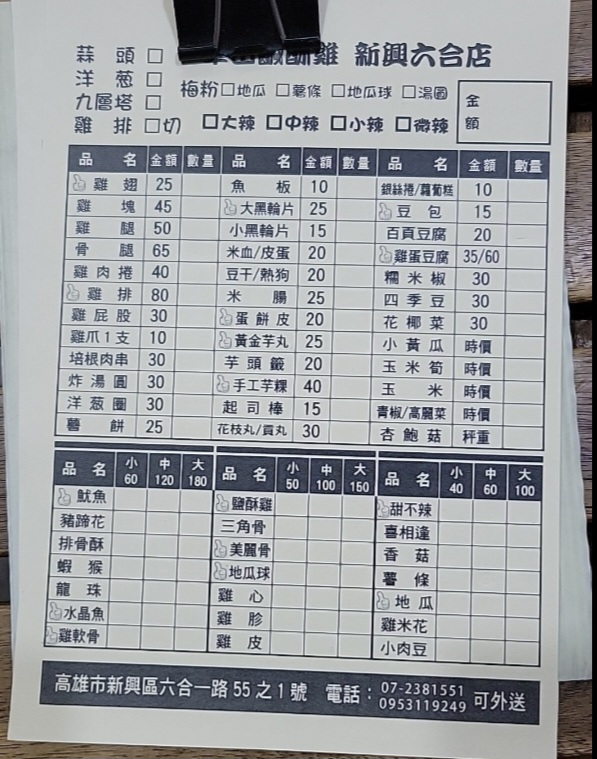 鹹酥雞 新興六合店
蒜頭□
洋葱□
九層塔□
雞排□切
梅粉□地瓜 □薯條 □地瓜球 □湯圓
□大辣 □中辣 □小辣 □微辣
金額
品名 金額 數量 品名 金額 數量 品名 金額 數量
雞翅 25 魚板 10 銀絲捲/蘿蔔糕 10
雞塊 45 大黑輪片 25 豆包 15
雞腿 50 小黑輪片 15 百頁豆腐 20
骨腿 65 米血/皮蛋 20 雞蛋豆腐 35/60
雞肉捲 40 豆干/熱狗 20 糯米椒 30
雞排 80 米腸 25 四季豆 30
雞屁股 30 蛋餅皮 20 花椰菜 30
雞爪1支 10 黃金芋丸 25 小黃瓜 時價
培根肉串 30 芋頭籤 20 玉米筍 時價
炸湯圓 30 手工芋粿 40 玉米 時價
洋葱圈 30 起司棒 15 青椒/高麗菜 時價
薯餅 25 花枝丸/貢丸 30 杏鮑菇 秤重
品名 小60 中120 大180 品名 小50 中100 大150 品名 小40 中60 大100
魷魚 鹽酥雞 甜不辣
豬蹄花 三角骨 喜相逢
排骨酥 美麗骨 香菇
蝦猴 地瓜球 薯條
龍珠 雞心 地瓜
水晶魚 雞胗 雞米花
雞軟骨 雞皮 小肉豆
高雄市新興區六合一路55之1號 電話:07-2381551 0953119249 可外送